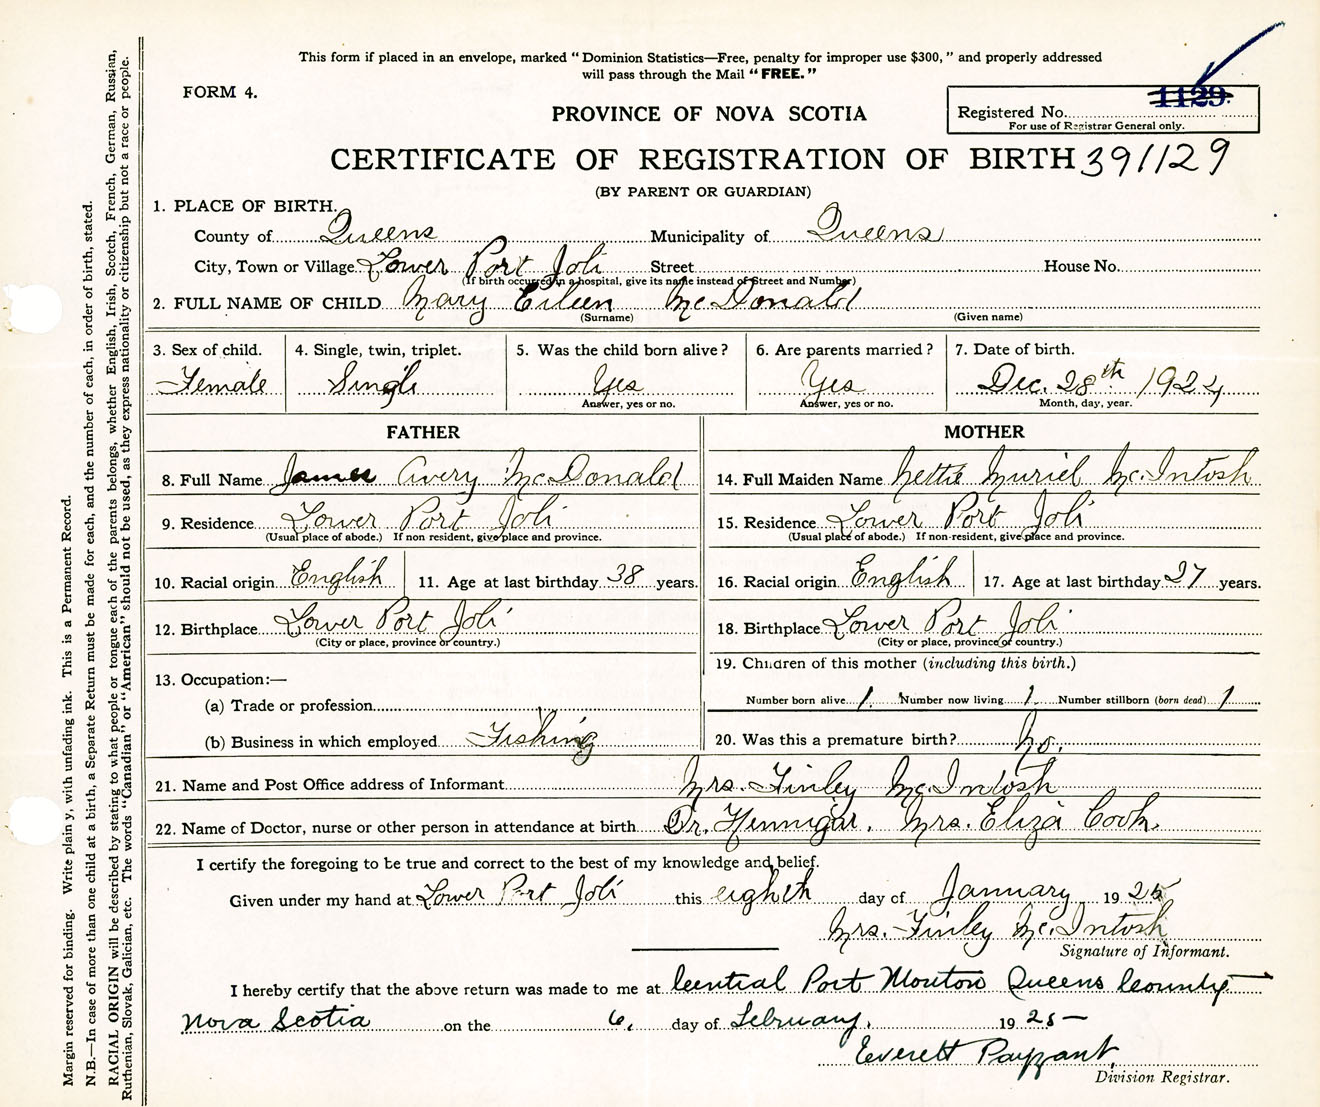 This form if placed in an envelope, marked "Dominion Statistics—Free, penalty for improper use $300," and properly addressed
will pass through the Mail "FREE."
FORM 4.
PROVINCE OF NOVA SCOTIA
1129
Registered No.
For use of Registrar General only.
CERTIFICATE OF REGISTRATION OF BIRTH 391129
(BY PARENT OR GUARDIAN)
1. PLACE OF BIRTH.
County of Queens Municipality of Queens
City, Town or Village Lower Port Joli Street House No.
(If birth occurred in a hospital, give its name instead of Street and Number)
2. FULL NAME OF CHILD Mary Eileen McDonald
(Surname) (Given name)
3. Sex of child. 4. Single, twin, triplet. 5. Was the child born alive? 6. Are parents married? 7. Date of birth.
Female Single Yes Yes Dec. 28th 1924
Answer, yes or no. Answer, yes or no. Month, day, year.
FATHER MOTHER
8. Full Name James Avery McDonald 14. Full Maiden Name Nettie Muriel McIntosh
9. Residence Lower Port Joli 15. Residence Lower Port Joli
(Usual place of abode.) If non resident, give place and province. (Usual place of abode.) If non-resident, give place and province.
10. Racial origin English 11. Age at last birthday 38 years. 16. Racial origin English 17. Age at last birthday 27 years.
12. Birthplace Lower Port Joli 18. Birthplace Lower Port Joli
(City or place, province or country.) (City or place, province or country.)
19. Children of this mother (including this birth.)
13. Occupation:—
Number born alive 1. Number now living 1. Number stillborn (born dead) 1
(a) Trade or profession
(b) Business in which employed Fishing 20. Was this a premature birth? No.
21. Name and Post Office address of Informant Mrs. Finley McIntosh
22. Name of Doctor, nurse or other person in attendance at birth Dr. Hennigar. Mrs. Eliza Cook.
I certify the foregoing to be true and correct to the best of my knowledge and belief.
Given under my hand at Lower Port Joli this eighth day of January 19 25
Mrs. Finley McIntosh
Signature of Informant.
I hereby certify that the above return was made to me at Central Port Mouton Queens County
Nova Scotia on the 6, day of February, 19 25—
Everett Payzant,
Division Registrar.
Margin reserved for binding. Write plain y, with unfading ink. This is a Permanent Record.
N.B.—In case of more than one child at a birth, a Separate Return must be made for each, and the number of each, in order of birth, stated.
RACIAL ORIGIN will be described by stating to what people or tongue each of the parents belongs, whether English, Irish, Scotch, French, German, Russian,
Ruthenian, Slovak, Galician, etc. The words "Canadian" or "American" should not be used, as they express nationality or citizenship but not a race or people.